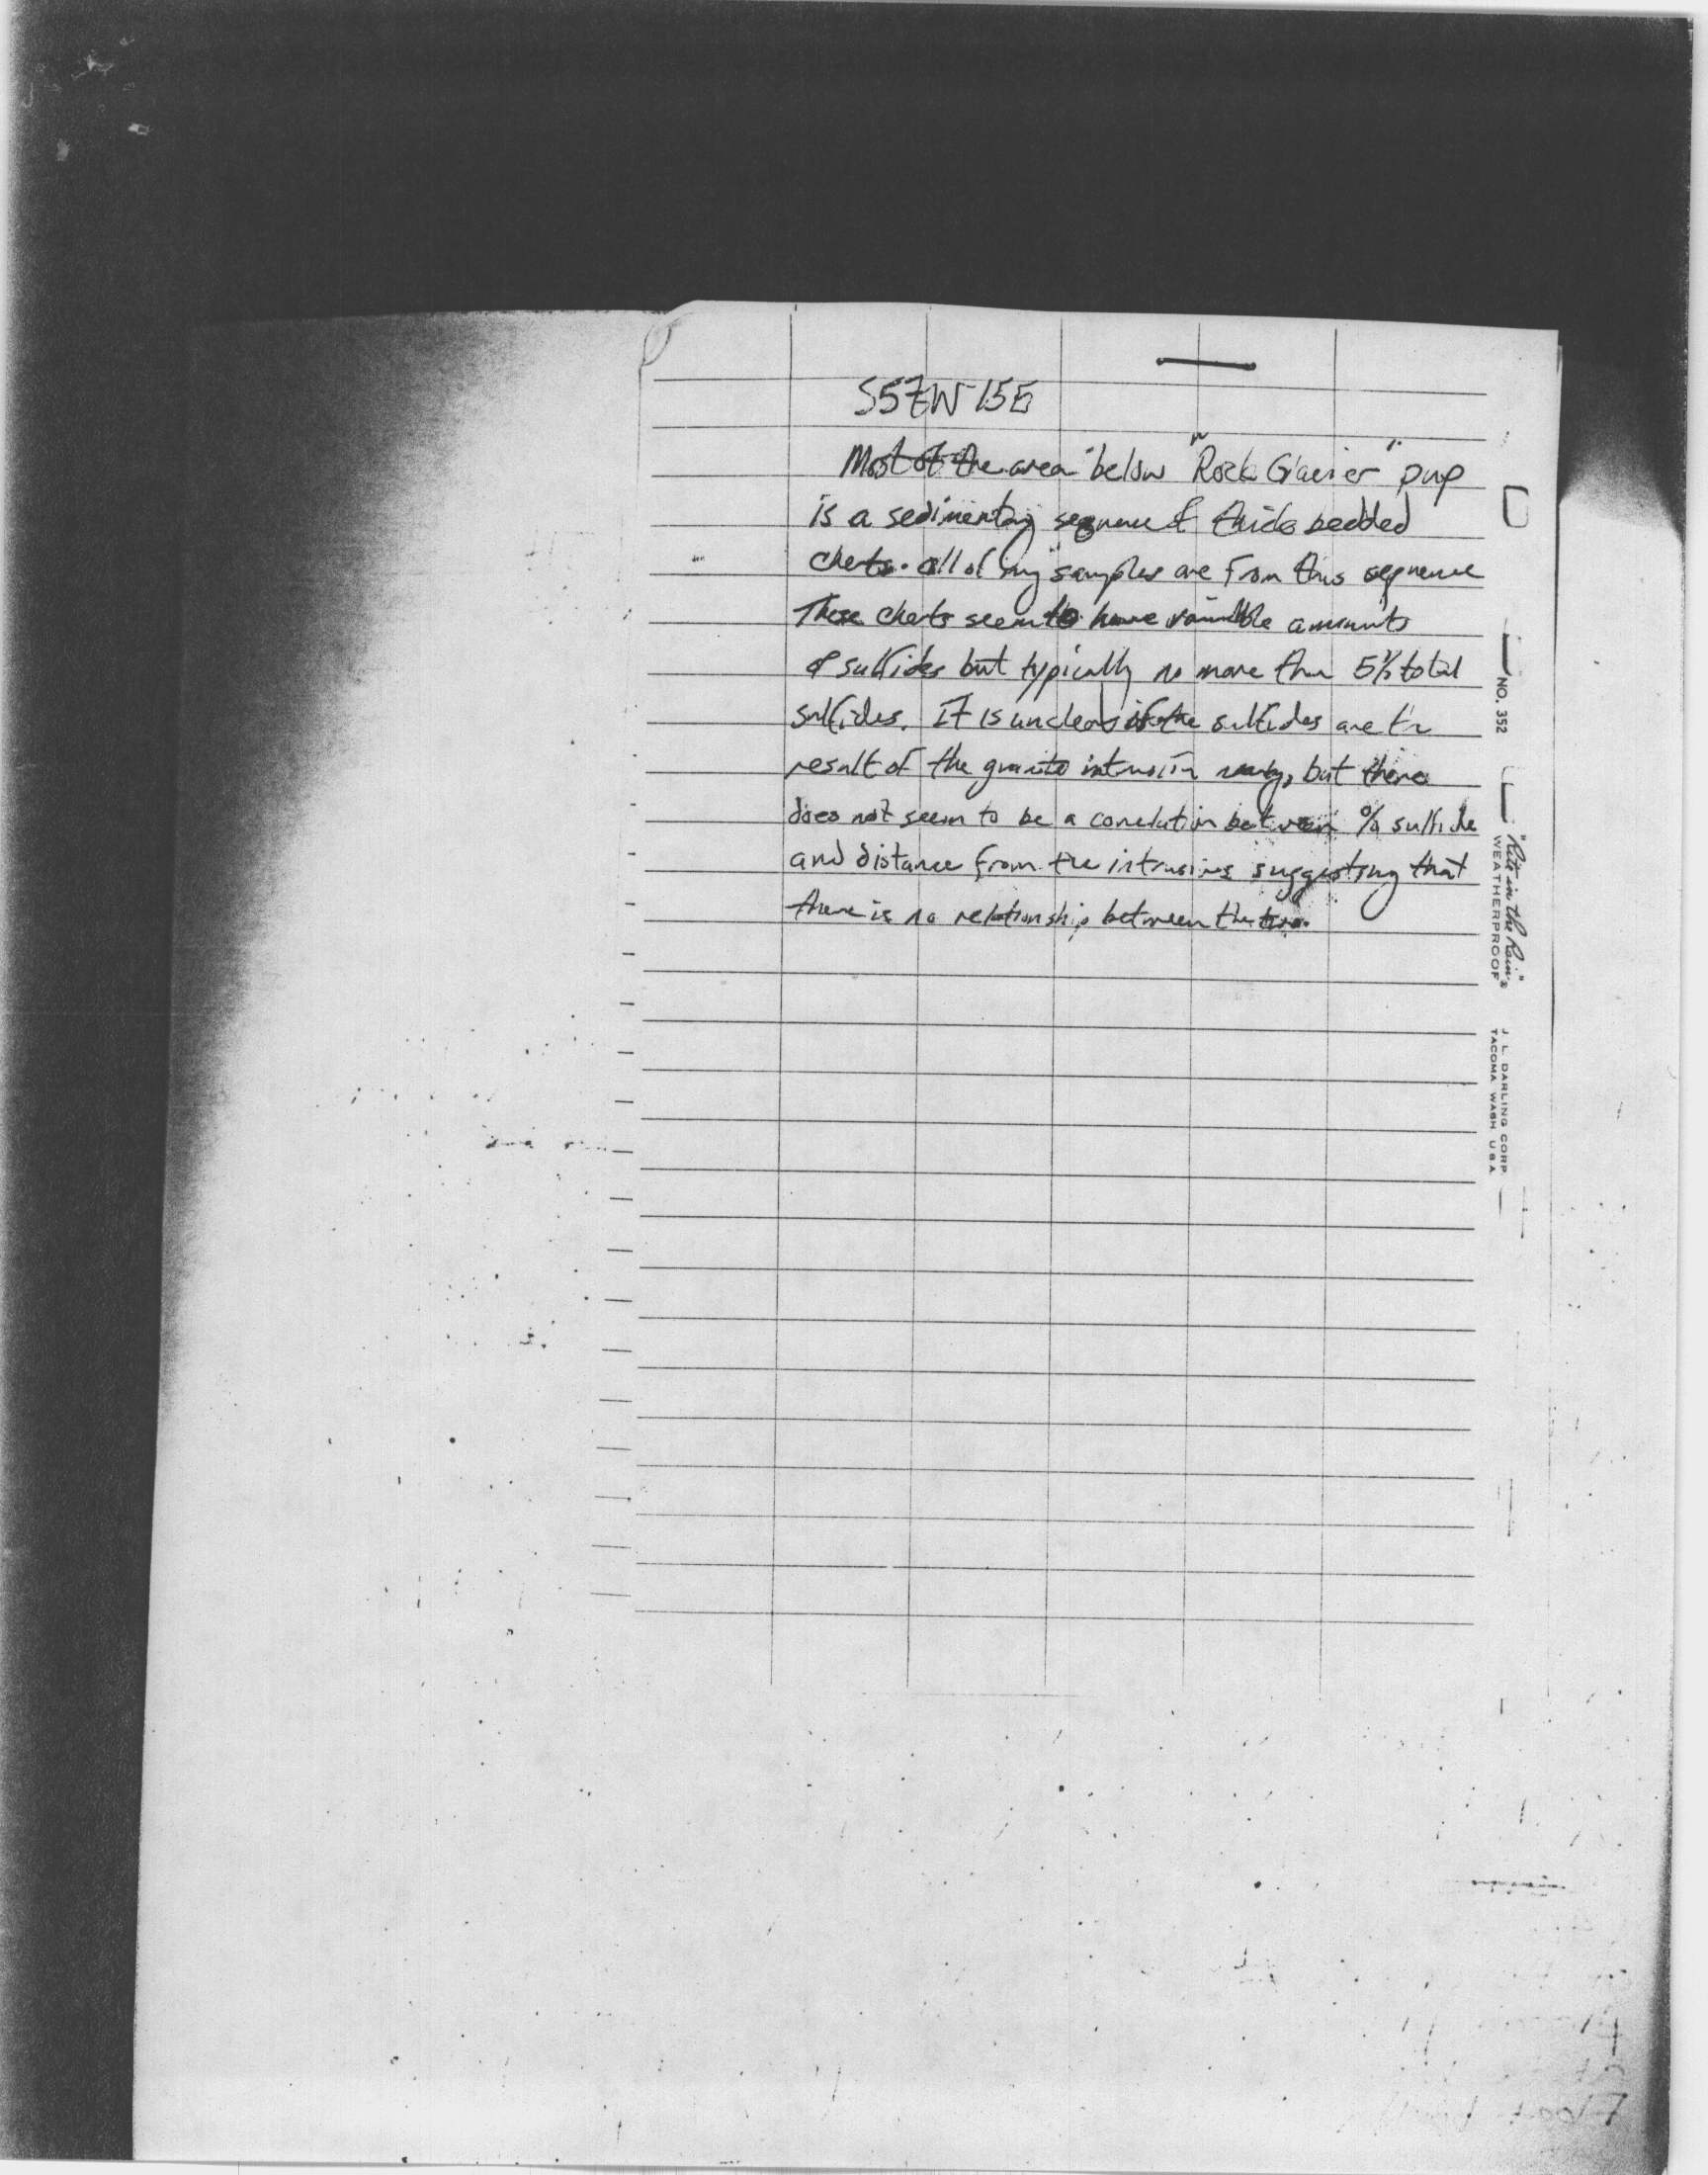 S57W 15E
Most of the area below "Rock Glacier" pup
is a sedimentary sequence of thick bedded
cherts. all of my samples are from this sequence
These cherts seem to have variable amounts
of sulfides but typically no more than 5% total
sulfides. It is unclear if the sulfides are the
result of the granite intrusion nearby, but there
does not seem to be a correlation between % sulfide
and distance from the intrusives suggesting that
there is no relationship between the two.
NO. 352
"Rite in the Rain"
WEATHERPROOF
J. L. DARLING CORP
TACOMA WASH U S A